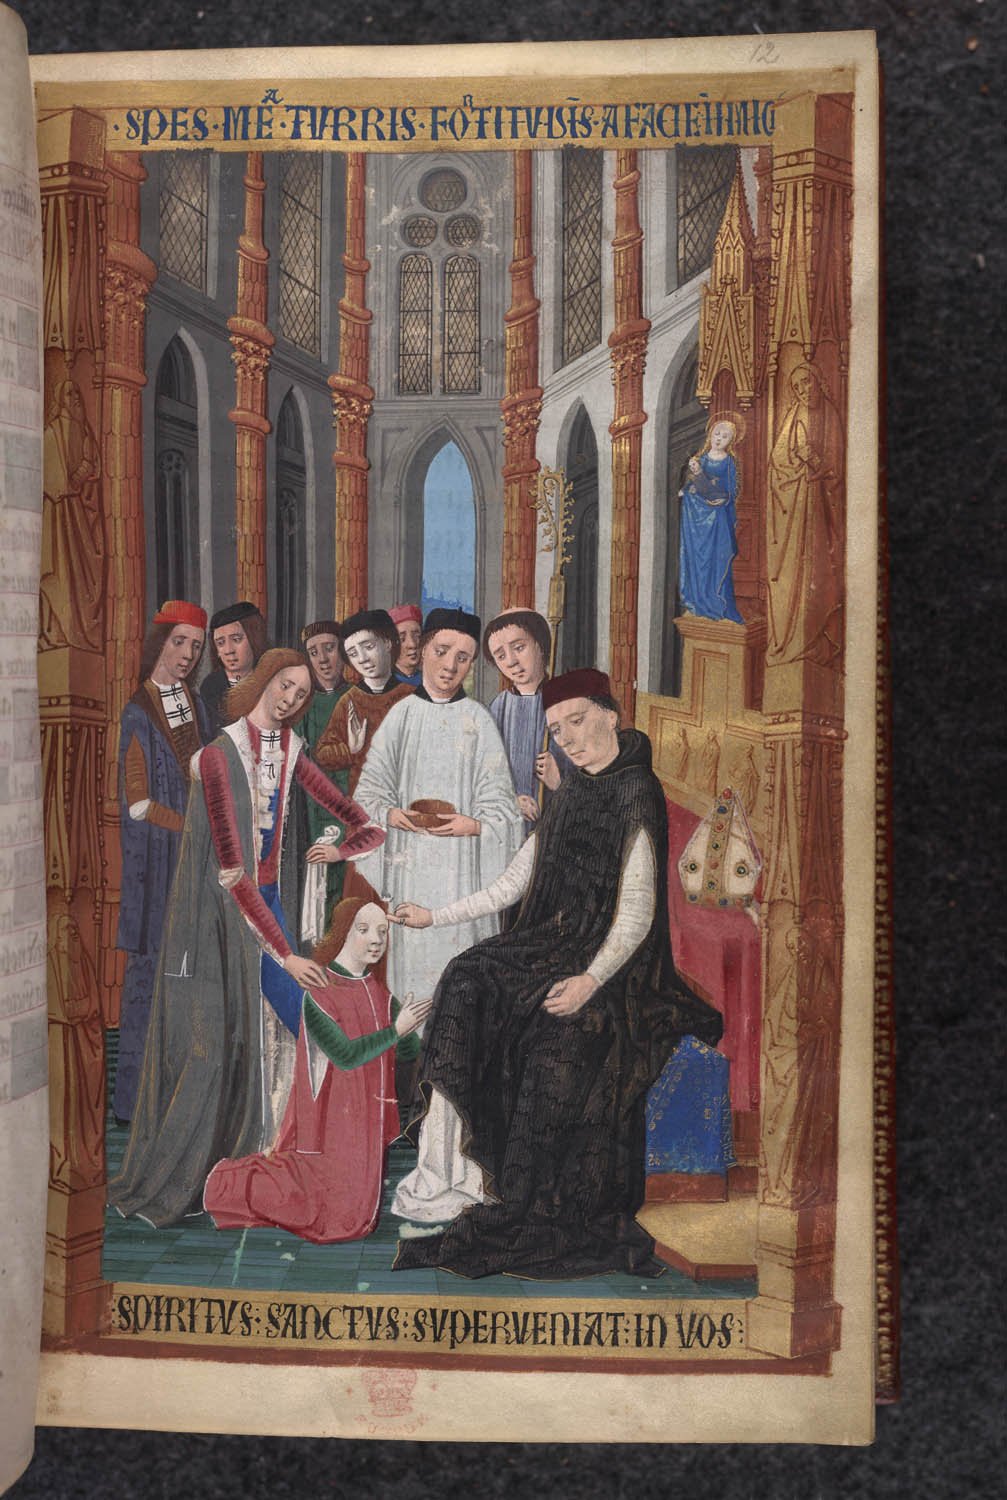 12
·SPES·MĒA·TVRRIS·FORTITVDĪS·A FACIE·INIMICI
:SPIRITVS:SANCTVS:SVPERVENIAT:IN VOS: